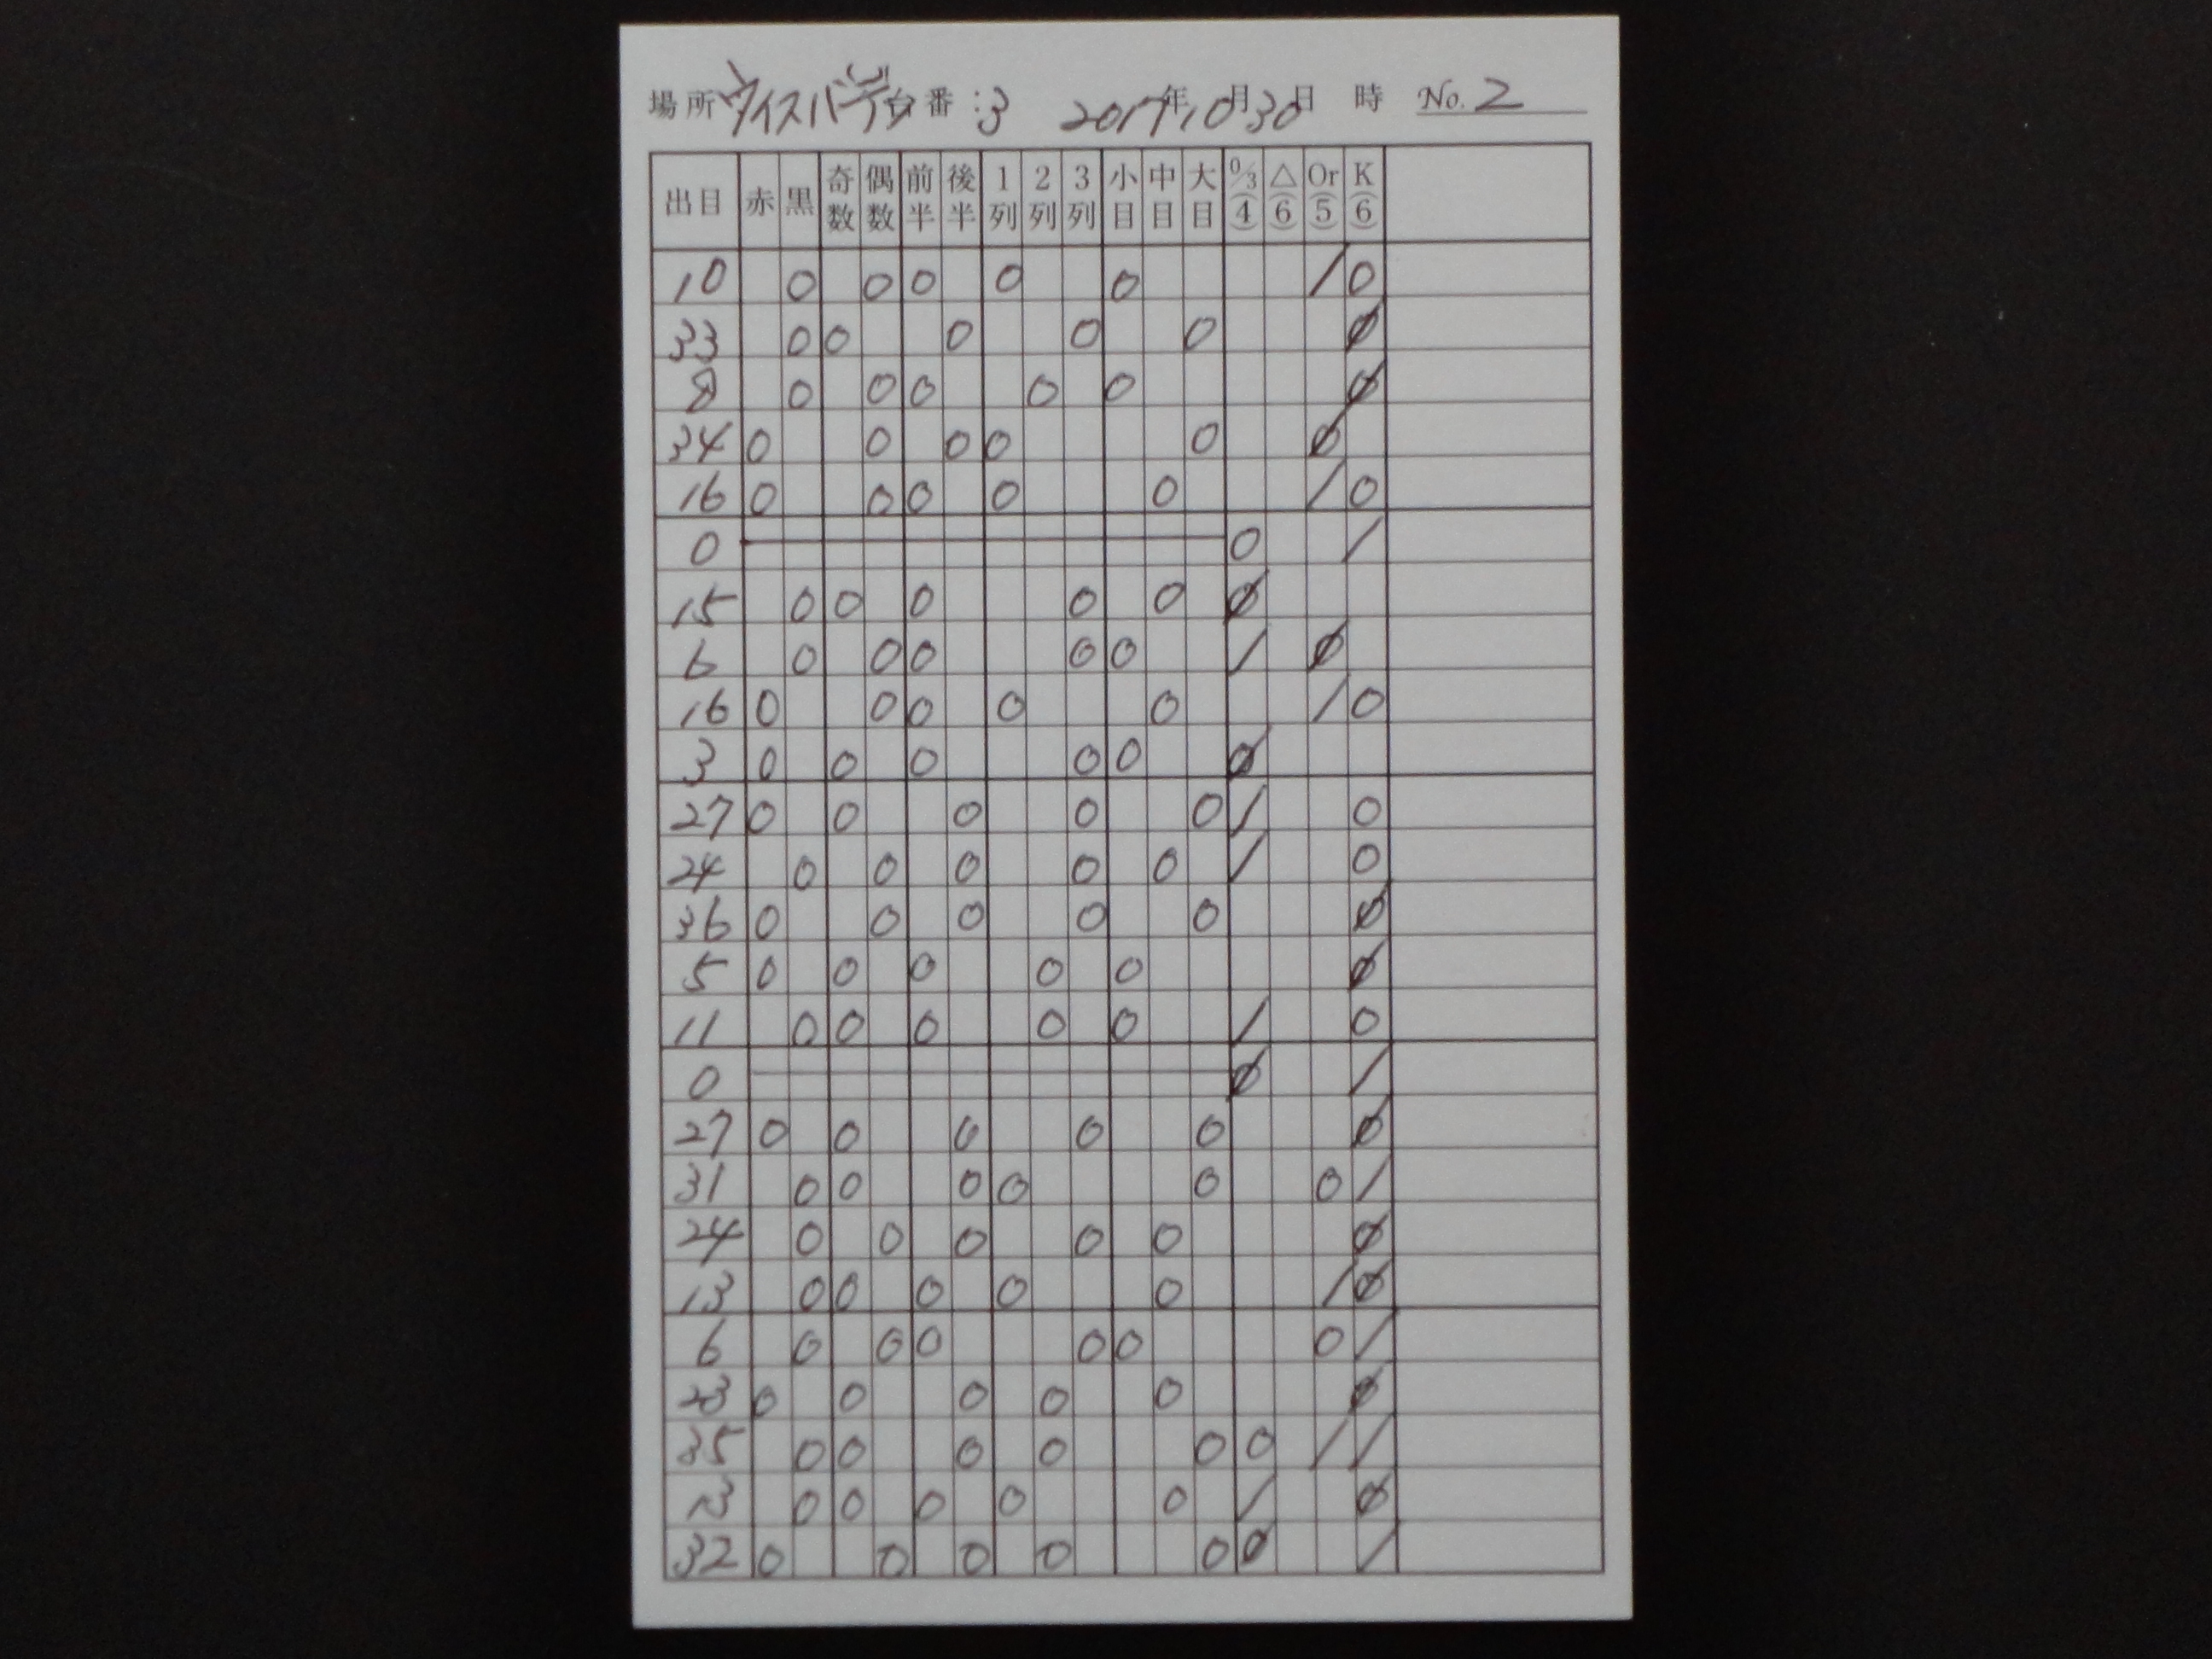 場所 ウイスバーデン 台番:3 2017年10月30日 時 No. 2
出目 赤 黒 奇数 偶数 前半 後半 1列 2列 3列 小目 中目 大目 0/3(4) △(6) Or(5) K(6)
10 0 0 0 0 0 / 0
33 0 0 0 0 0 Ø
8 0 0 0 0 0 Ø
34 0 0 0 0 0 Ø
16 0 0 0 0 0 / 0
0 0 /
15 0 0 0 0 0 Ø
6 0 0 0 0 0 / Ø
16 0 0 0 0 0 / 0
3 0 0 0 0 0 Ø
27 0 0 0 0 0 / 0
24 0 0 0 0 0 / 0
36 0 0 0 0 0 Ø
5 0 0 0 0 0 Ø
11 0 0 0 0 0 / 0
0 Ø /
27 0 0 0 0 0 Ø
31 0 0 0 0 0 0 /
24 0 0 0 0 0 Ø
13 0 0 0 0 0 / Ø
6 0 0 0 0 0 0 /
23 0 0 0 0 0 Ø
35 0 0 0 0 0 0 / /
13 0 0 0 0 0 / Ø
32 0 0 0 0 0 Ø /